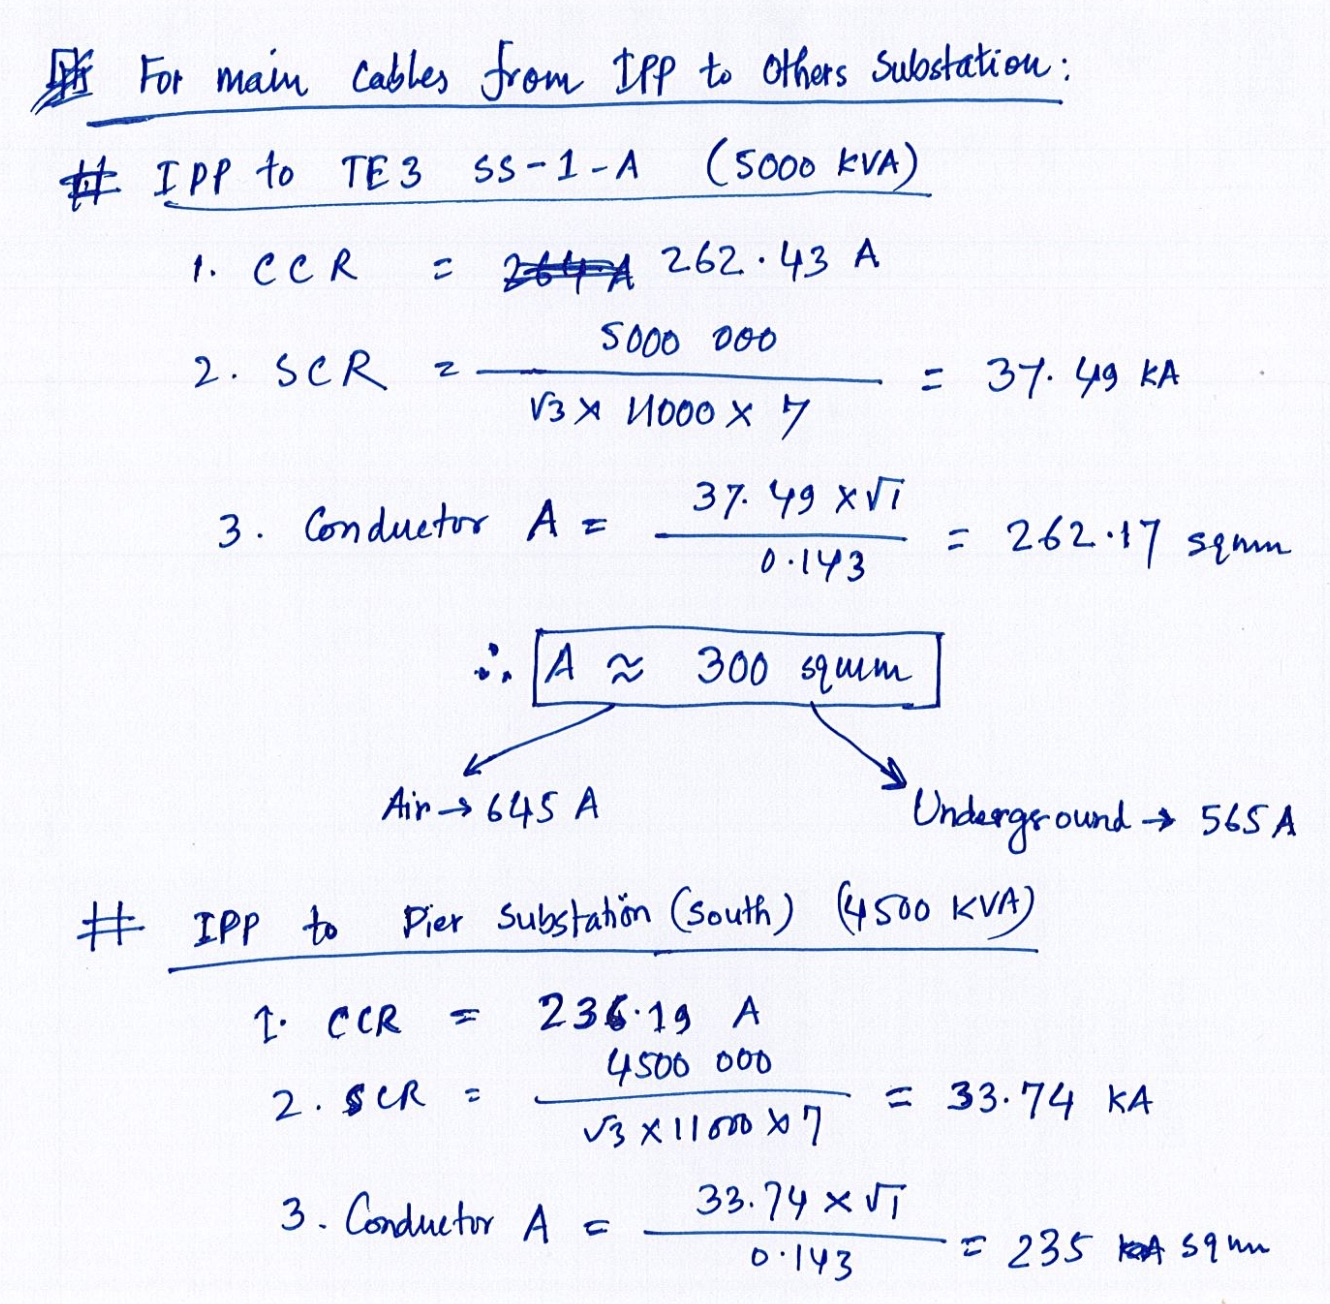 For main Cables from IPP to Others Substation:
# IPP to TE3 SS-1-A (5000 KVA)
1. CCR = 264 A 262.43 A
2. SCR = 5000 000 / √3 × 11000 × 7 = 37.49 KA
3. Conductor A = 37.49 × √1 / 0.143 = 262.17 sqmm
∴ A ≈ 300 sqmm
Air → 645 A Underground → 565 A
# IPP to Pier Substation (South) (4500 KVA)
1. CCR = 236.19 A
2. SCR = 4500 000 / √3 × 11000 × 7 = 33.74 KA
3. Conductor A = 33.74 × √1 / 0.143 = 235 sqmm